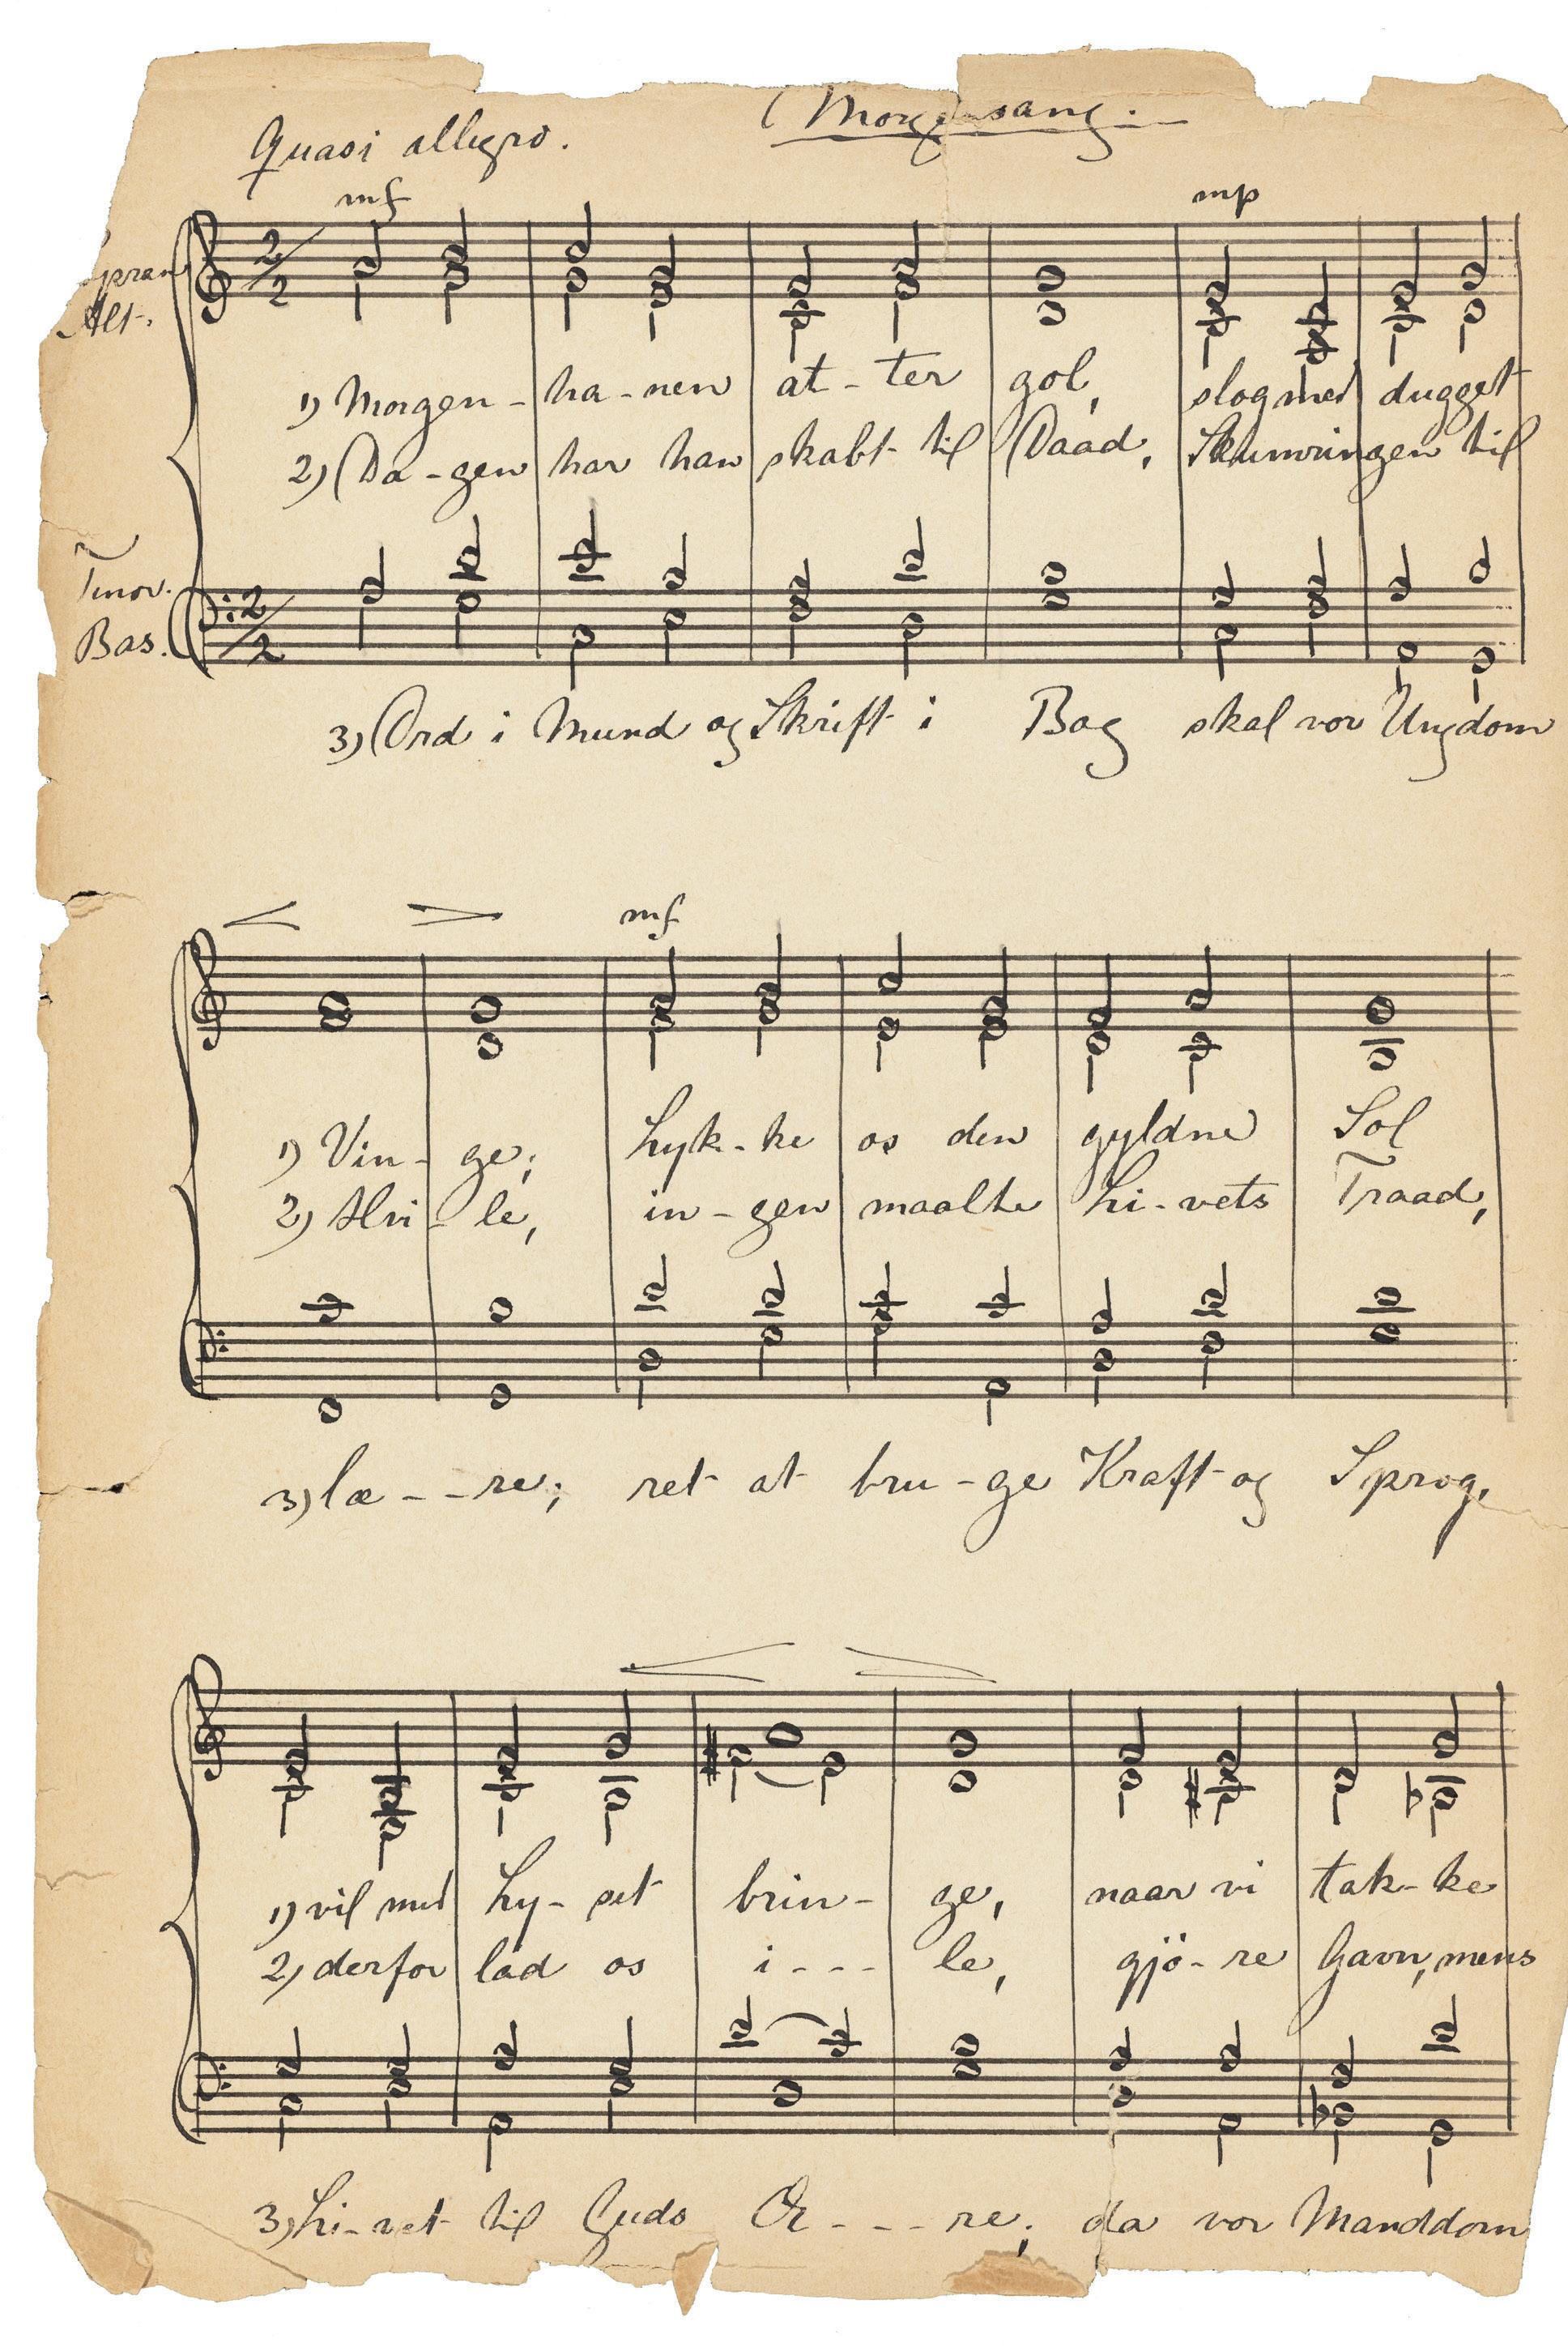 Morgensang.
Quasi allegro.
mf mp
Alt.
1) Morgen- ha-nen at-ter gol, slog med dugget
2) Da-gen har han skabt til Daad, Skumringen til
Tenor.
Bas.
3) Ord i Mund og Skrift i Bog skal vor Ungdom
mf
1) Vin- ge; Lyk-ke os den gyldne Sol
2) Hvi- le, in-gen maalte Li-vets Traad,
3) læ--re; ret at bru-ge Kraft og Sprog,
1) vil med Ly-set brin- ge, naar vi tak-ke
2) derfor lad os i--- le, gjö-re Gavn, mens
3) Li-vet til Guds Æ---re; da vor Manddom